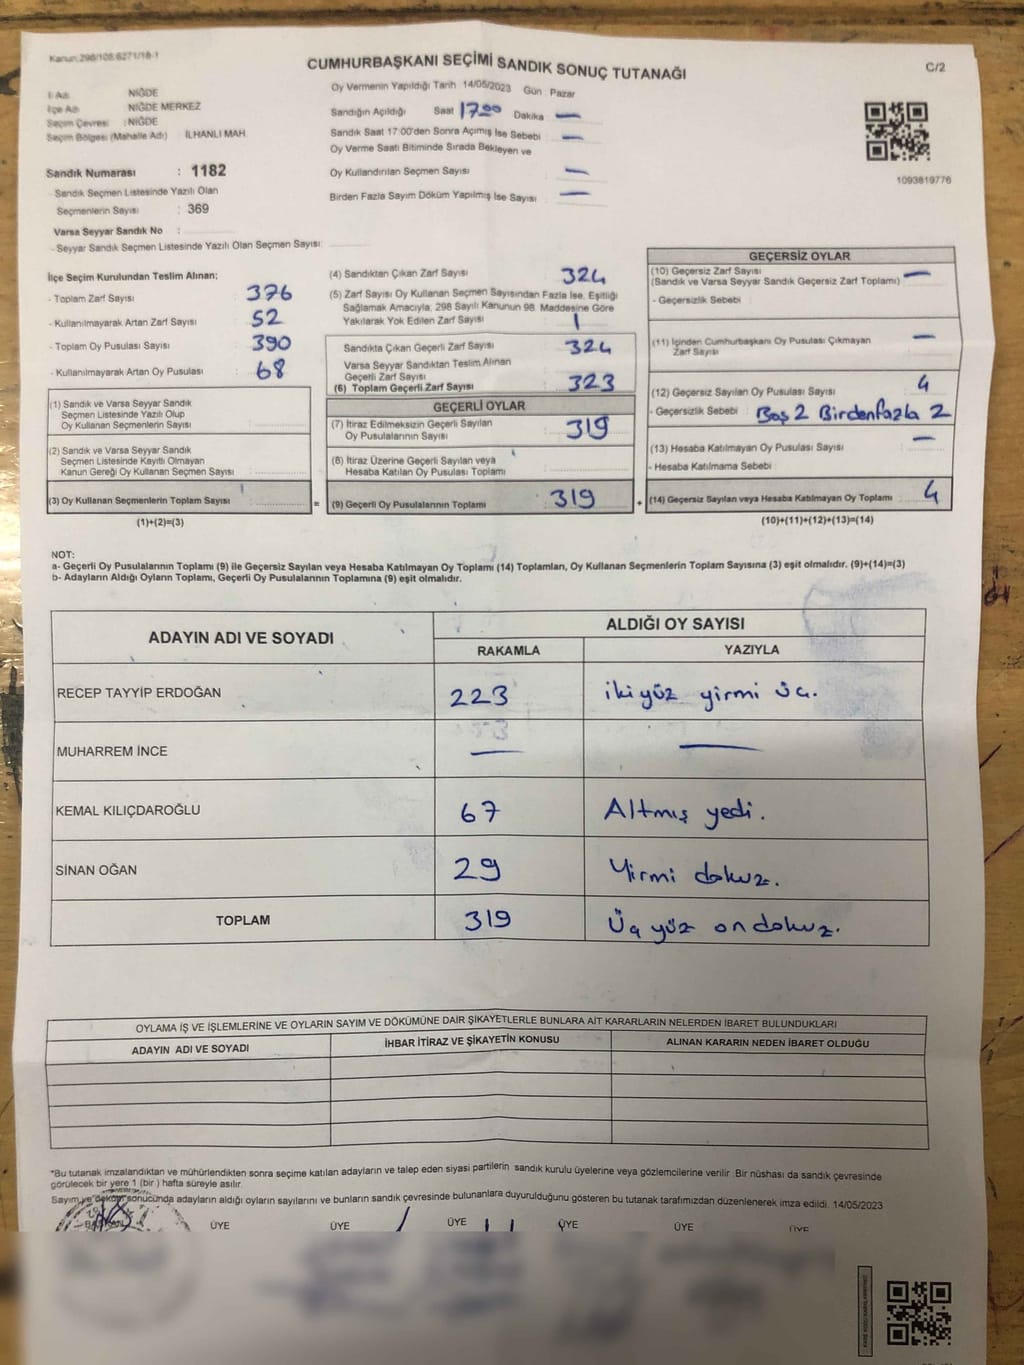 Kanun:298/108.6271/18-1
CUMHURBAŞKANI SEÇİMİ SANDIK SONUÇ TUTANAĞI
C/2
İl Adı : NİĞDE
İlçe Adı : NİĞDE MERKEZ
Seçim Çevresi : NİĞDE
Seçim Bölgesi (Mahalle Adı) : İLHANLI MAH.
Sandık Numarası : 1182
- Sandık Seçmen Listesinde Yazılı Olan
Seçmenlerin Sayısı : 369
Varsa Seyyar Sandık No :
- Seyyar Sandık Seçmen Listesinde Yazılı Olan Seçmen Sayısı:
Oy Vermenin Yapıldığı Tarih 14/05/2023 Gün : Pazar
Sandığın Açıldığı Saat 17.00 Dakika —
Sandık Saat 17:00'den Sonra Açımış İse Sebebi —
Oy Verme Saati Bitiminde Sırada Bekleyen ve
Oy Kullandırılan Seçmen Sayısı —
Birden Fazla Sayım Döküm Yapılmış İse Sayısı —
1093819776
İlçe Seçim Kurulundan Teslim Alınan;
- Toplam Zarf Sayısı : 376
- Kullanılmayarak Artan Zarf Sayısı : 52
- Toplam Oy Pusulası Sayısı : 390
- Kullanılmayarak Artan Oy Pusulası : 68
(1) Sandık ve Varsa Seyyar Sandık
Seçmen Listesinde Yazılı Olup
Oy Kullanan Seçmenlerin Sayısı :
(2) Sandık ve Varsa Seyyar Sandık
Seçmen Listesinde Kayıtlı Olmayan
Kanun Gereği Oy Kullanan Seçmen Sayısı :
(3) Oy Kullanan Seçmenlerin Toplam Sayısı :
(1)+(2)=(3)
(4) Sandıktan Çıkan Zarf Sayısı 324
(5) Zarf Sayısı Oy Kullanan Seçmen Sayısından Fazla İse, Eşitliği
Sağlamak Amacıyla, 298 Sayılı Kanunun 98. Maddesine Göre
Yakılarak Yok Edilen Zarf Sayısı : 1
Sandıkta Çıkan Geçerli Zarf Sayısı : 324
Varsa Seyyar Sandıktan Teslim Alınan
Geçerli Zarf Sayısı
(6) Toplam Geçerli Zarf Sayısı : 323
GEÇERLİ OYLAR
(7) İtiraz Edilmeksizin Geçerli Sayılan
Oy Pusulalarının Sayısı : 319
(8) İtiraz Üzerine Geçerli Sayılan veya
Hesaba Katılan Oy Pusulası Toplamı
= (9) Geçerli Oy Pusulalarının Toplamı : 319 +
GEÇERSİZ OYLAR
(10) Geçersiz Zarf Sayısı
(Sandık ve Varsa Seyyar Sandık Geçersiz Zarf Toplamı) : —
- Geçersizlik Sebebi :
(11) İçinden Cumhurbaşkanı Oy Pusulası Çıkmayan
Zarf Sayısı : —
(12) Geçersiz Sayılan Oy Pusulası Sayısı : 4
- Geçersizlik Sebebi : Boş 2 Birdenfazla 2
(13) Hesaba Katılmayan Oy Pusulası Sayısı : —
- Hesaba Katılmama Sebebi :
(14) Geçersiz Sayılan veya Hesaba Katılmayan Oy Toplamı : 4
(10)+(11)+(12)+(13)=(14)
NOT:
a- Geçerli Oy Pusulalarının Toplamı (9) ile Geçersiz Sayılan veya Hesaba Katılmayan Oy Toplamı (14) Toplamları, Oy Kullanan Seçmenlerin Toplam Sayısına (3) eşit olmalıdır. (9)+(14)=(3)
b- Adayların Aldığı Oyların Toplamı, Geçerli Oy Pusulalarının Toplamına (9) eşit olmalıdır.
ADAYIN ADI VE SOYADI
ALDIĞI OY SAYISI
RAKAMLA YAZIYLA
RECEP TAYYİP ERDOĞAN 223 iki yüz yirmi üç.
MUHARREM İNCE — —
KEMAL KILIÇDAROĞLU 67 Altmış yedi.
SİNAN OĞAN 29 Yirmi dokuz.
TOPLAM 319 Üç yüz on dokuz.
OYLAMA İŞ VE İŞLEMLERİNE VE OYLARIN SAYIM VE DÖKÜMÜNE DAİR ŞİKAYETLERLE BUNLARA AİT KARARLARIN NELERDEN İBARET BULUNDUKLARI
ADAYIN ADI VE SOYADI İHBAR İTİRAZ VE ŞİKAYETİN KONUSU ALINAN KARARIN NEDEN İBARET OLDUĞU
*Bu tutanak imzalandıktan ve mühürlendikten sonra seçime katılan adayların ve talep eden siyasi partilerin sandık kurulu üyelerine veya gözlemcilerine verilir. Bir nüshası da sandık çevresinde
görülecek bir yere 1 (bir) hafta süreyle asılır.
Sayım ve döküm sonucunda adayların aldığı oyların sayılarını ve bunların sandık çevresinde bulunanlara duyurulduğunu gösteren bu tutanak tarafımızdan düzenlenerek imza edildi. 14/05/2023
BAŞKAN ÜYE ÜYE ÜYE ÜYE ÜYE ÜYE